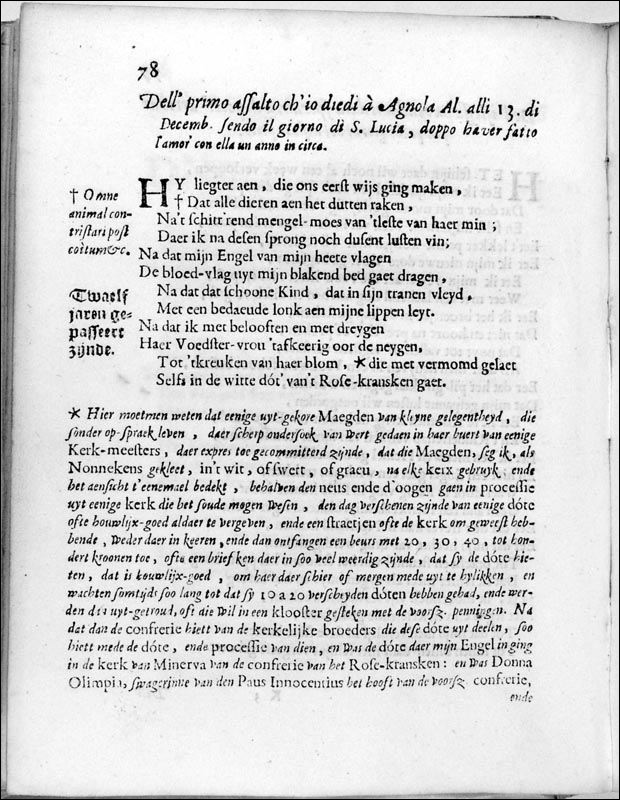 78
Dell' primo assalto ch' io diedi à Agnola Al. alli 13. di
Decemb. sendo il giorno di S. Lucia, doppo haver fatto
l'amor' con ella un anno in circa.
† Omne
animal con-
tristari post
coitum &c.
HY liegter aen, die ons eerst wijs ging maken,
† Dat alle dieren aen het dutten raken,
Na't schitt'rend mengel-moes van 'tleste van haer min;
Daer ik na desen sprong noch dusent lusten vin;
Na dat mijn Engel van mijn heete vlagen
De bloed-vlag uyt mijn blakend bed gaet dragen,
Twaelf
jaren ge-
passeert
zijnde.
Na dat dat schoone Kind, dat in sijn tranen vleyd,
Met een bedaeude lonk aen mijne lippen leyt.
Na dat ik met belooften en met dreygen
Haer Voedster-vrou 'tafkeerig oor de neygen,
Tot 'tkreuken van haer blom, * die met vermomd gelaet
Selfs in de witte dót' van't Rose-kransken gaet.
* Hier moetmen weten dat eenige uyt-gekore Maegden van kleyne gelegentheyd, die
sonder op-spraek leven, daer scherp ondersoek van wert gedaen in haer buert van eenige
Kerk-meesters, daer expres toe gecommitterd zijnde, dat die Maegden, seg ik, als
Nonnekens gekleet, in't wit, of swert, of graeu, na elke kerx gebruyk, ende
het aensicht t'eenemael bedekt, behalven den neus ende d'oogen gaen in processie
uyt eenige kerk die het soude mogen wesen, den dag verschenen zijnde van eenige dóte
ofte houwlijx-goed aldaer te vergeven, ende een straetjen ofte de kerk om geweest heb-
bende, weder daer in keeren, ende dan ontfangen een beurs met 20, 30, 40, tot hon-
dert kroonen toe, ofte een brief ken daer in soo veel weerdig zijnde, dat sy de dóte hie-
ten, dat is houwlijx-goed, om haer daer schier of mergen mede uyt te hylikken, en
wachten somtijds soo lang tot dat sy 10 a 20 verscheyden dóten hebben gehad, ende wer-
den dan uyt-getroud, oft die wil in een klooster gesteken met de voorsz. penningen. Na
dat dan de confrerie hiett van de kerkelijke broeders die dese dóte uyt deelen, soo
hiett mede de dóte, ende processie van dien, en was de dóte daer mijn Engel in ging
in de kerk van Minerva van de confrerie van het Rose-kransken: en was Donna
Olimpia, swagerinne van den Paus Innocentius het hooft van de voorsz. confrerie,
ende